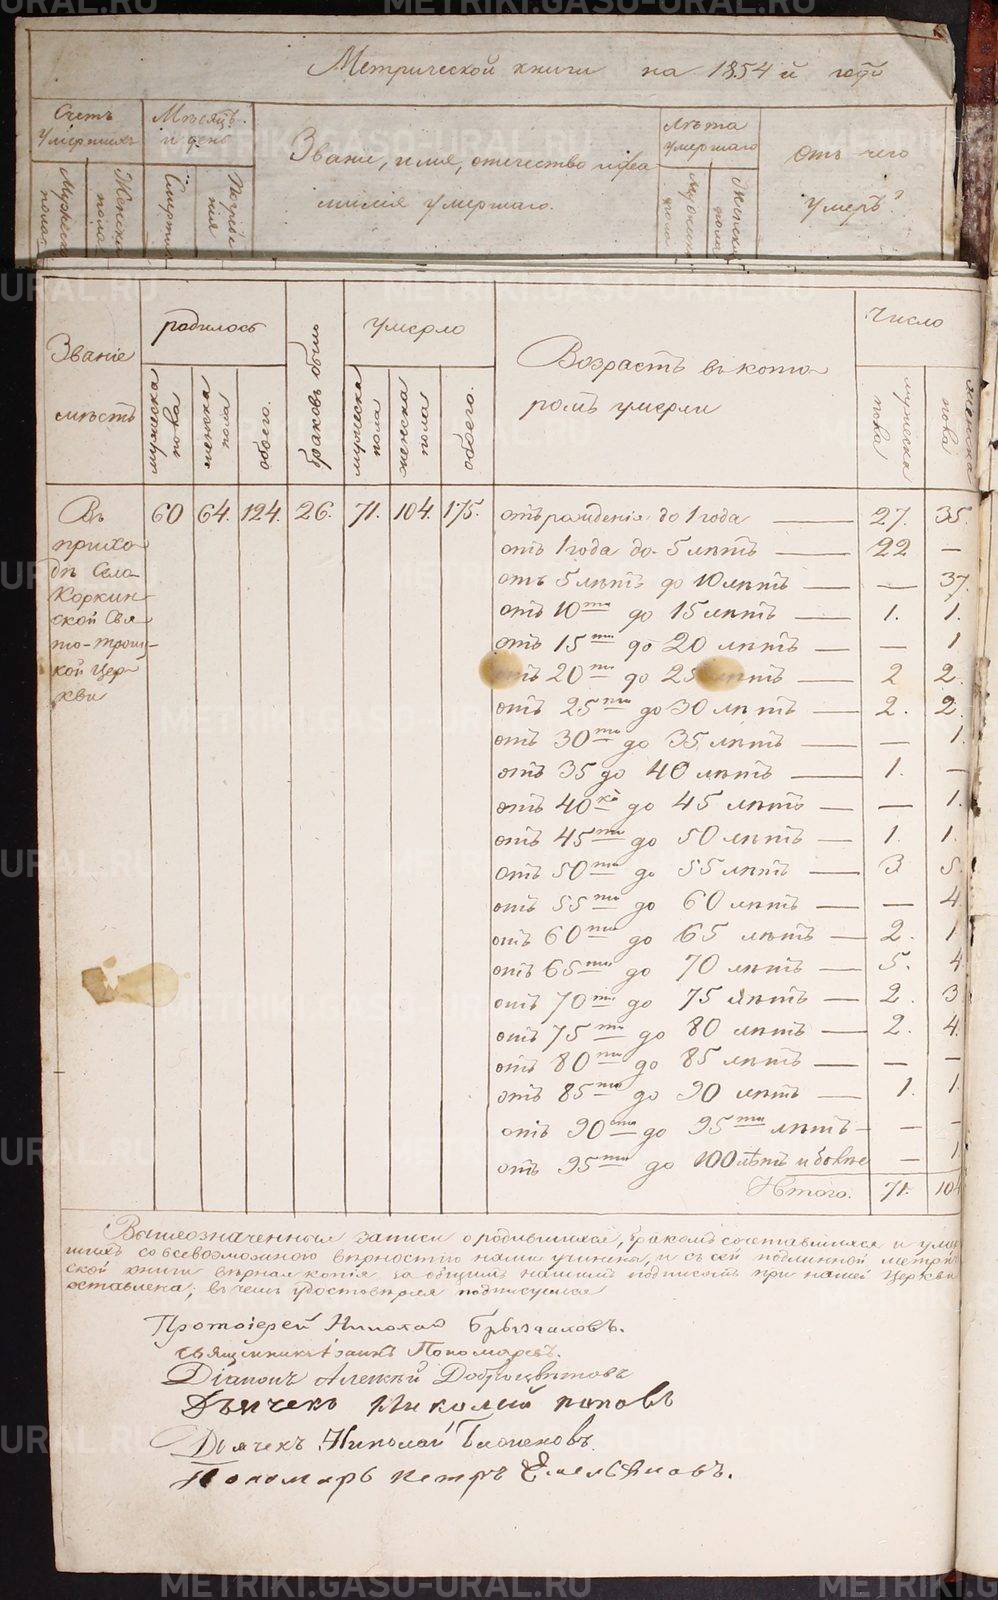 Метрической книги на 1854й годъ
Счетъ умершихъ
Мужеска пола
Женска пола
Мѣсяцъ и день
Смерти
Погребения
Званіе, имя, отечество и фамилия умершаго.
Лѣта умершаго
Мужска пола
Женска пола
отъ чего умеръ?
Званіе мѣстъ
родилось
мужеска пола
женска пола
обоего.
браковъ было
умерло
мужеска пола
женска пола
обоего.
Возрастъ въ которомъ умерли
Число
мужска пола
женска пола
Въ приходѣ Села Коркинской Свято-Троицкой Церкви
60 64. 124. 26. 71. 104. 175.
отъ рожденія до 1 года — 27. 35.
отъ 1 года до 5 лѣтъ — 22 —
отъ 5 лѣтъ до 10 лѣтъ — — 37.
отъ 10ти до 15 лѣтъ — 1. 1.
отъ 15ти до 20 лѣтъ — — 1
отъ 20ти до 25 лѣтъ — 2 2.
отъ 25ти до 30 лѣтъ — 2. 2.
отъ 30ти до 35 лѣтъ — — 1.
отъ 35 до 40 лѣтъ — 1. —
отъ 40ка до 45 лѣтъ — — 1.
отъ 45ти до 50 лѣтъ — 1. 1.
отъ 50ти до 55 лѣтъ — 3 5.
отъ 55ти до 60 лѣтъ — — 4
отъ 60ти до 65 лѣтъ — 2. 1
отъ 65ти до 70 лѣтъ — 5. 4.
отъ 70ти до 75 лѣтъ — 2. 3
отъ 75ти до 80 лѣтъ — 2. 4.
отъ 80ти до 85 лѣтъ — — —
отъ 85ти до 90 лѣтъ — 1. 1.
отъ 90ста до 95ти лѣтъ — — —
отъ 95ти до 100 лѣтъ и болѣе — 1
Итого. 71. 104
Вышеозначенныя записи о родившихся, бракомъ сочетавшихся и умер
шихъ со всевозможною вѣрностію нами учинены, и съ сей подлинной метриче
ской книги вѣрная копія за общимъ нашимъ подписомъ при нашей Церкви
оставлена; въ чемъ удостовѣряя подписуемся
Протоіерей Николай
Священникъ Іоаннъ Пономаревъ.
Діаконъ Алексѣй Доброцвѣтовъ
Дьячекъ Николай Поповъ
Дьячекъ Николай
Пономарь Петръ Емельяновъ.
METRIKI.GASO-URAL.RU